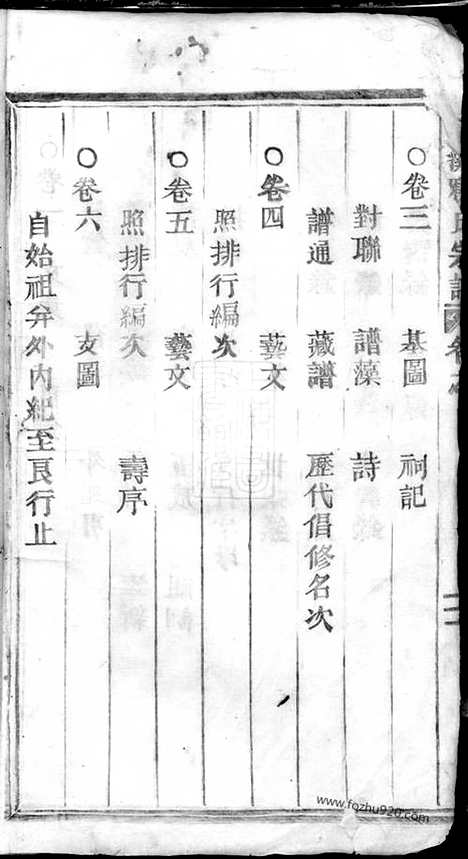 ○卷三 基圖 祠記
對聯 譜藻 詩
譜通 藏譜 歷代倡修名次
○卷四 藝文
照排行編次
○卷五 藝文
照排行編次 壽序
○卷六 支圖
自始祖弁外內紀至艮行止
氏宗譜 卷之
二
www.fozhu920.com